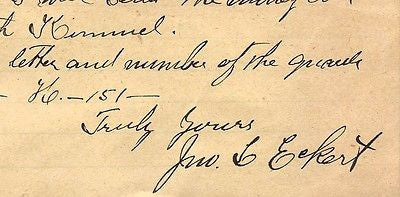 send the money
Kimmel.
letter and number of the
— H. — 151 —
Truly Yours
Jno. L Eckert